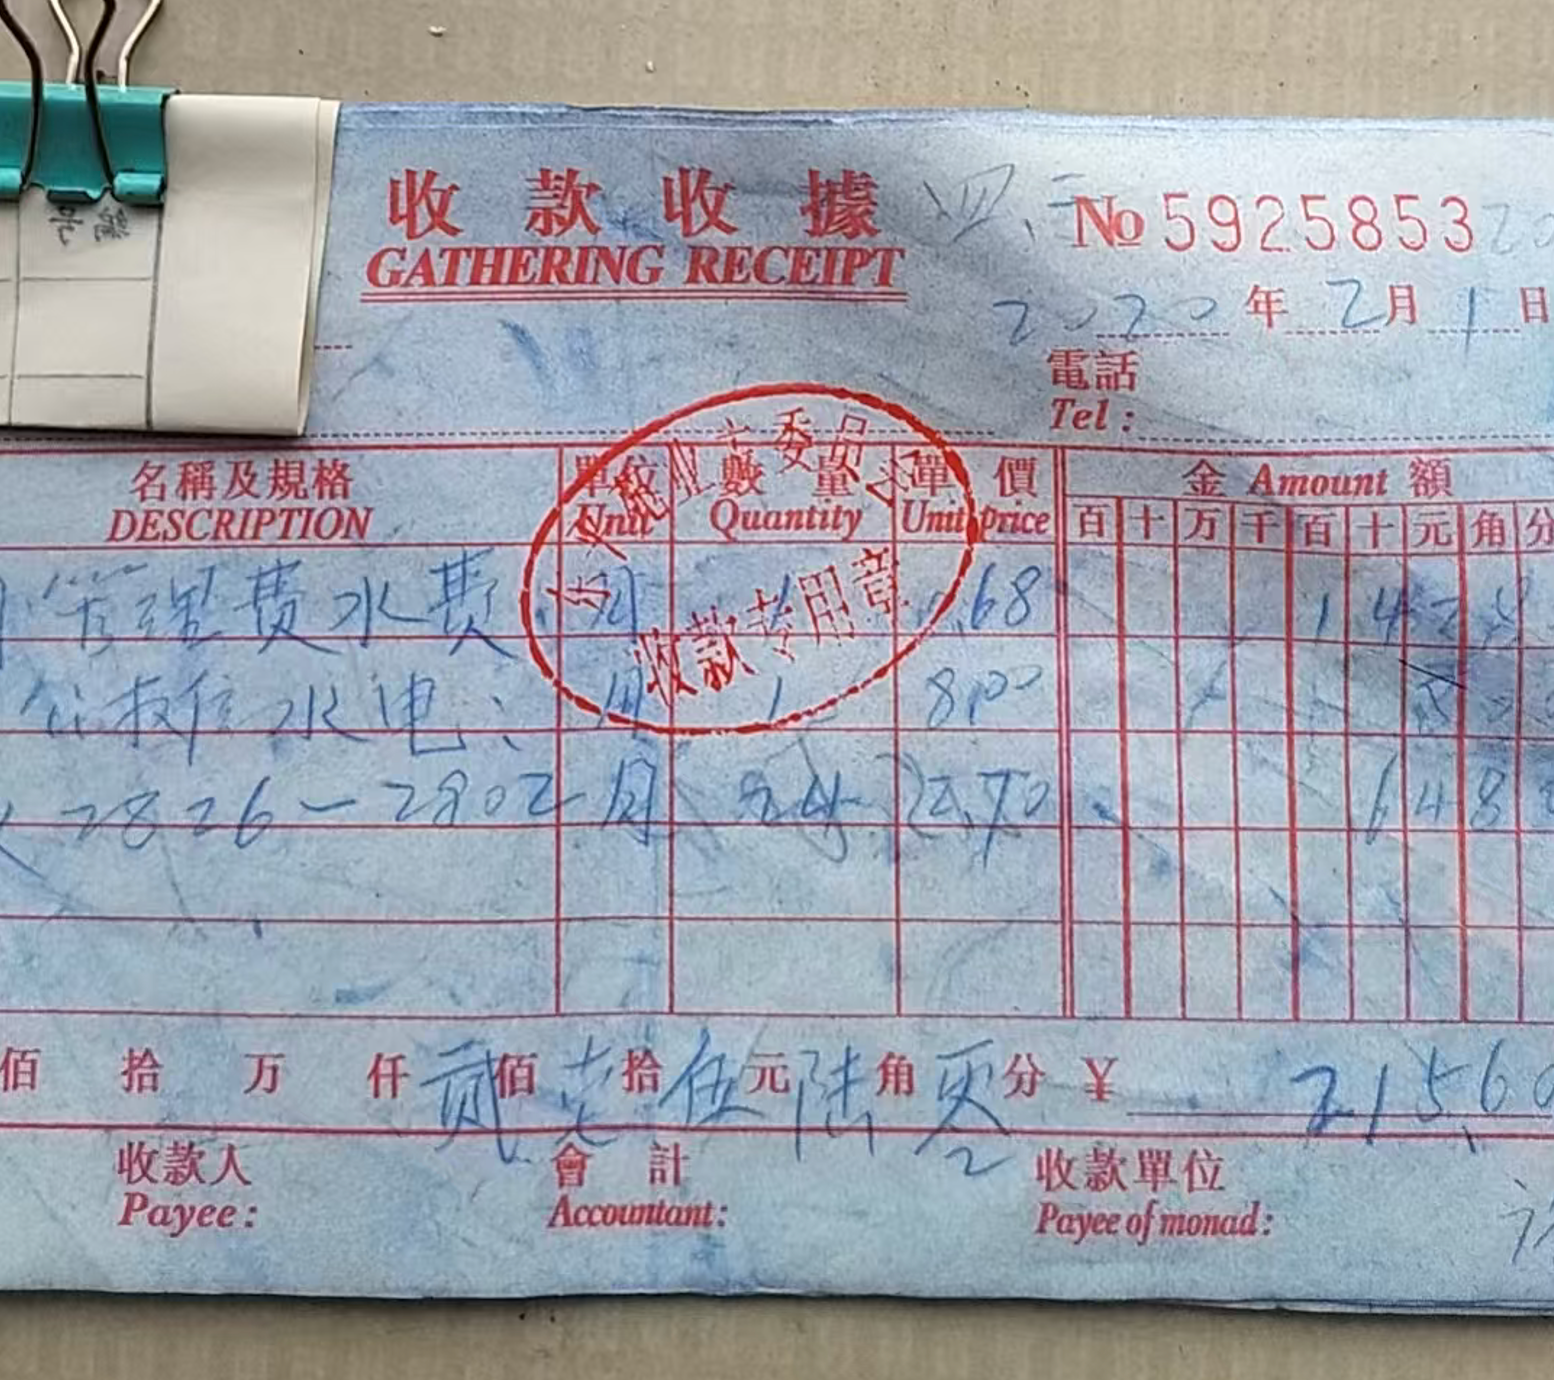 收款收據 No 5925853
GATHERING RECEIPT
2020 年 2 月 1 日
電話
Tel:
名稱及規格 單位 數量 單價 金 Amount 額
DESCRIPTION Unit Quantity Unit price 百 十 万 千 百 十 元 角 分
业主委员
收款专用章
管理费水费 月 1 .68 1 4
水电 月 1 8.00 8
2826-2802 月 24 2.70 6 4 8
佰 拾 万 仟 贰 佰 壱 拾 伍 元 陆 角 零 分 ¥ 215.60
收款人 會計 收款單位
Payee: Accountant: Payee of monad: